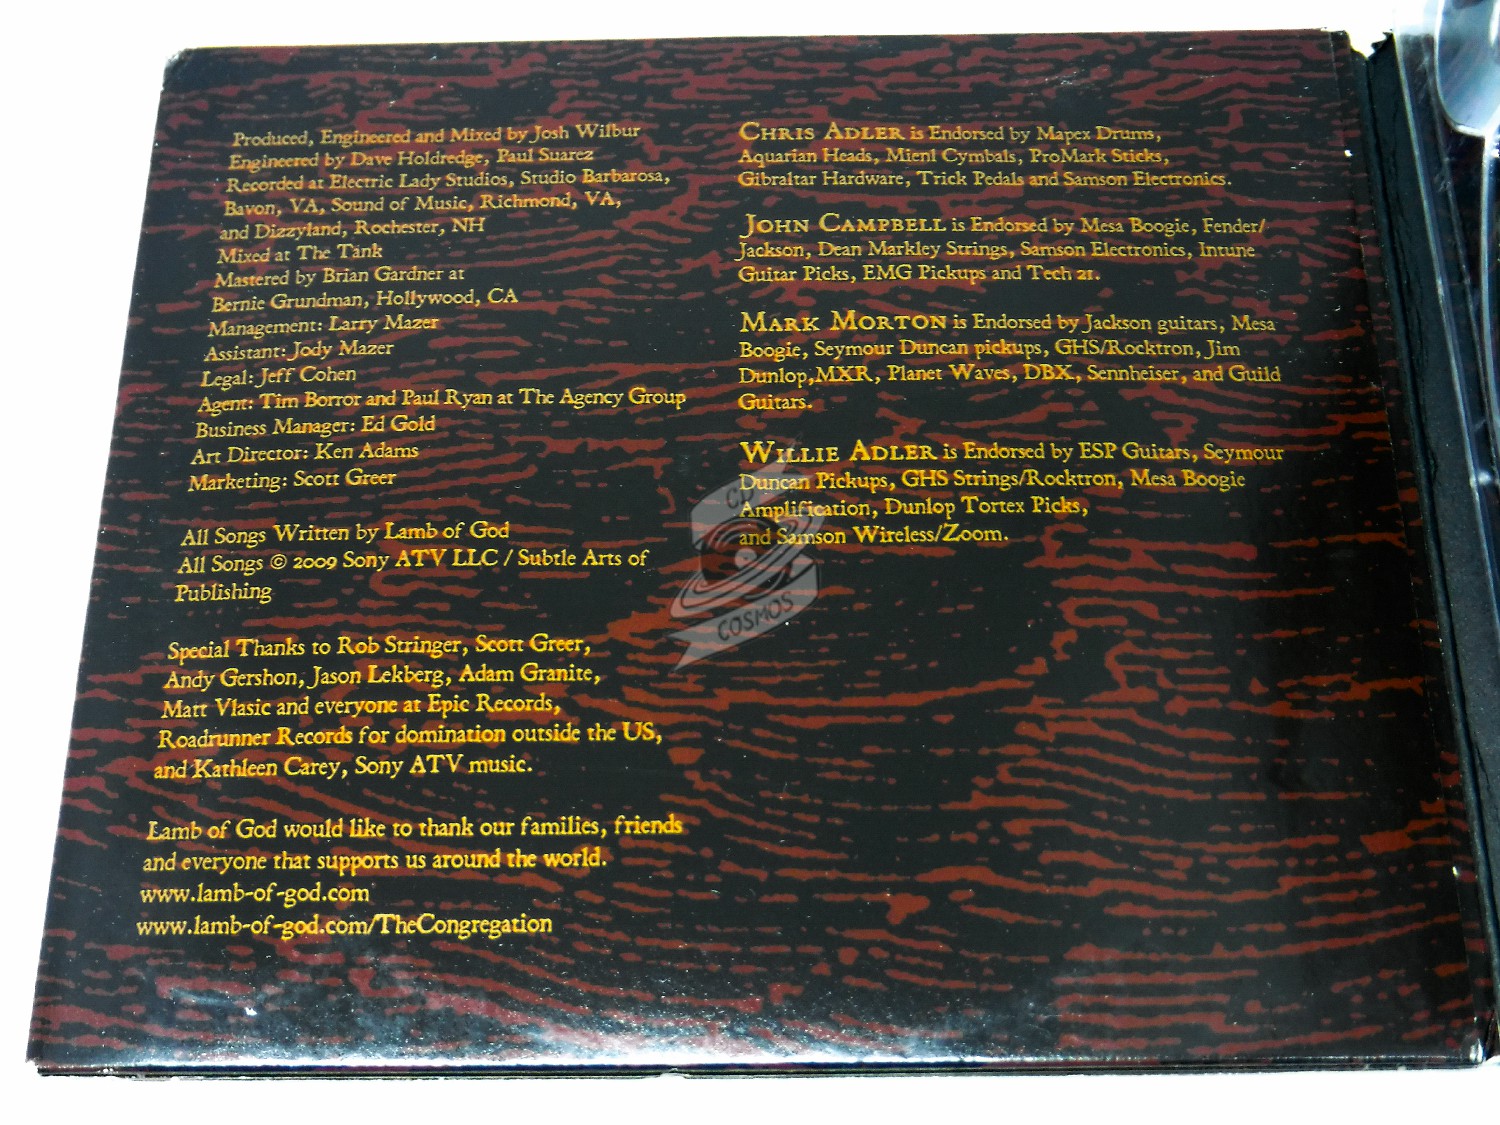 Produced, Engineered and Mixed by Josh Wilbur
Engineered by Dave Holdredge, Paul Suarez
Recorded at Electric Lady Studios, Studio Barbarosa,
Bavon, VA, Sound of Music, Richmond, VA,
and Dizzyland, Rochester, NH
Mixed at The Tank
Mastered by Brian Gardner at
Bernie Grundman, Hollywood, CA
Management: Larry Mazer
Assistant: Jody Mazer
Legal: Jeff Cohen
Agent: Tim Borror and Paul Ryan at The Agency Group
Business Manager: Ed Gold
Art Director: Ken Adams
Marketing: Scott Greer
All Songs Written by Lamb of God
All Songs © 2009 Sony ATV LLC / Subtle Arts of
Publishing
Special Thanks to Rob Stringer, Scott Greer,
Andy Gershon, Jason Lekberg, Adam Granite,
Matt Vlasic and everyone at Epic Records,
Roadrunner Records for domination outside the US,
and Kathleen Carey, Sony ATV music.
Lamb of God would like to thank our families, friends
and everyone that supports us around the world.
www.lamb-of-god.com
www.lamb-of-god.com/TheCongregation
CHRIS ADLER is Endorsed by Mapex Drums,
Aquarian Heads, Mienl Cymbals, ProMark Sticks,
Gibraltar Hardware, Trick Pedals and Samson Electronics.
JOHN CAMPBELL is Endorsed by Mesa Boogie, Fender/
Jackson, Dean Markley Strings, Samson Electronics, Intune
Guitar Picks, EMG Pickups and Tech 21.
MARK MORTON is Endorsed by Jackson guitars, Mesa
Boogie, Seymour Duncan pickups, GHS/Rocktron, Jim
Dunlop,MXR, Planet Waves, DBX, Sennheiser, and Guild
Guitars.
WILLIE ADLER is Endorsed by ESP Guitars, Seymour
Duncan Pickups, GHS Strings/Rocktron, Mesa Boogie
Amplification, Dunlop Tortex Picks,
and Samson Wireless/Zoom.
CD
COSMOS